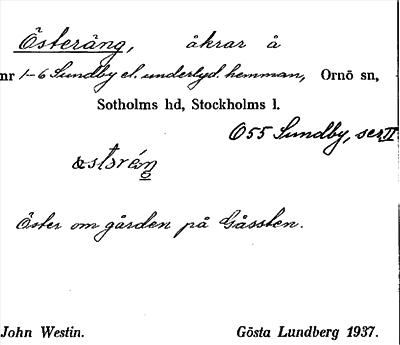 Österäng, åkrar å
nr 1-6 Sundby el. underlyd. hemman, Ornö sn,
Sotholms hd, Stockholms l.
O55 Sundby, ser II
Öster om gården på Gåssten.
John Westin. Gösta Lundberg 1937.